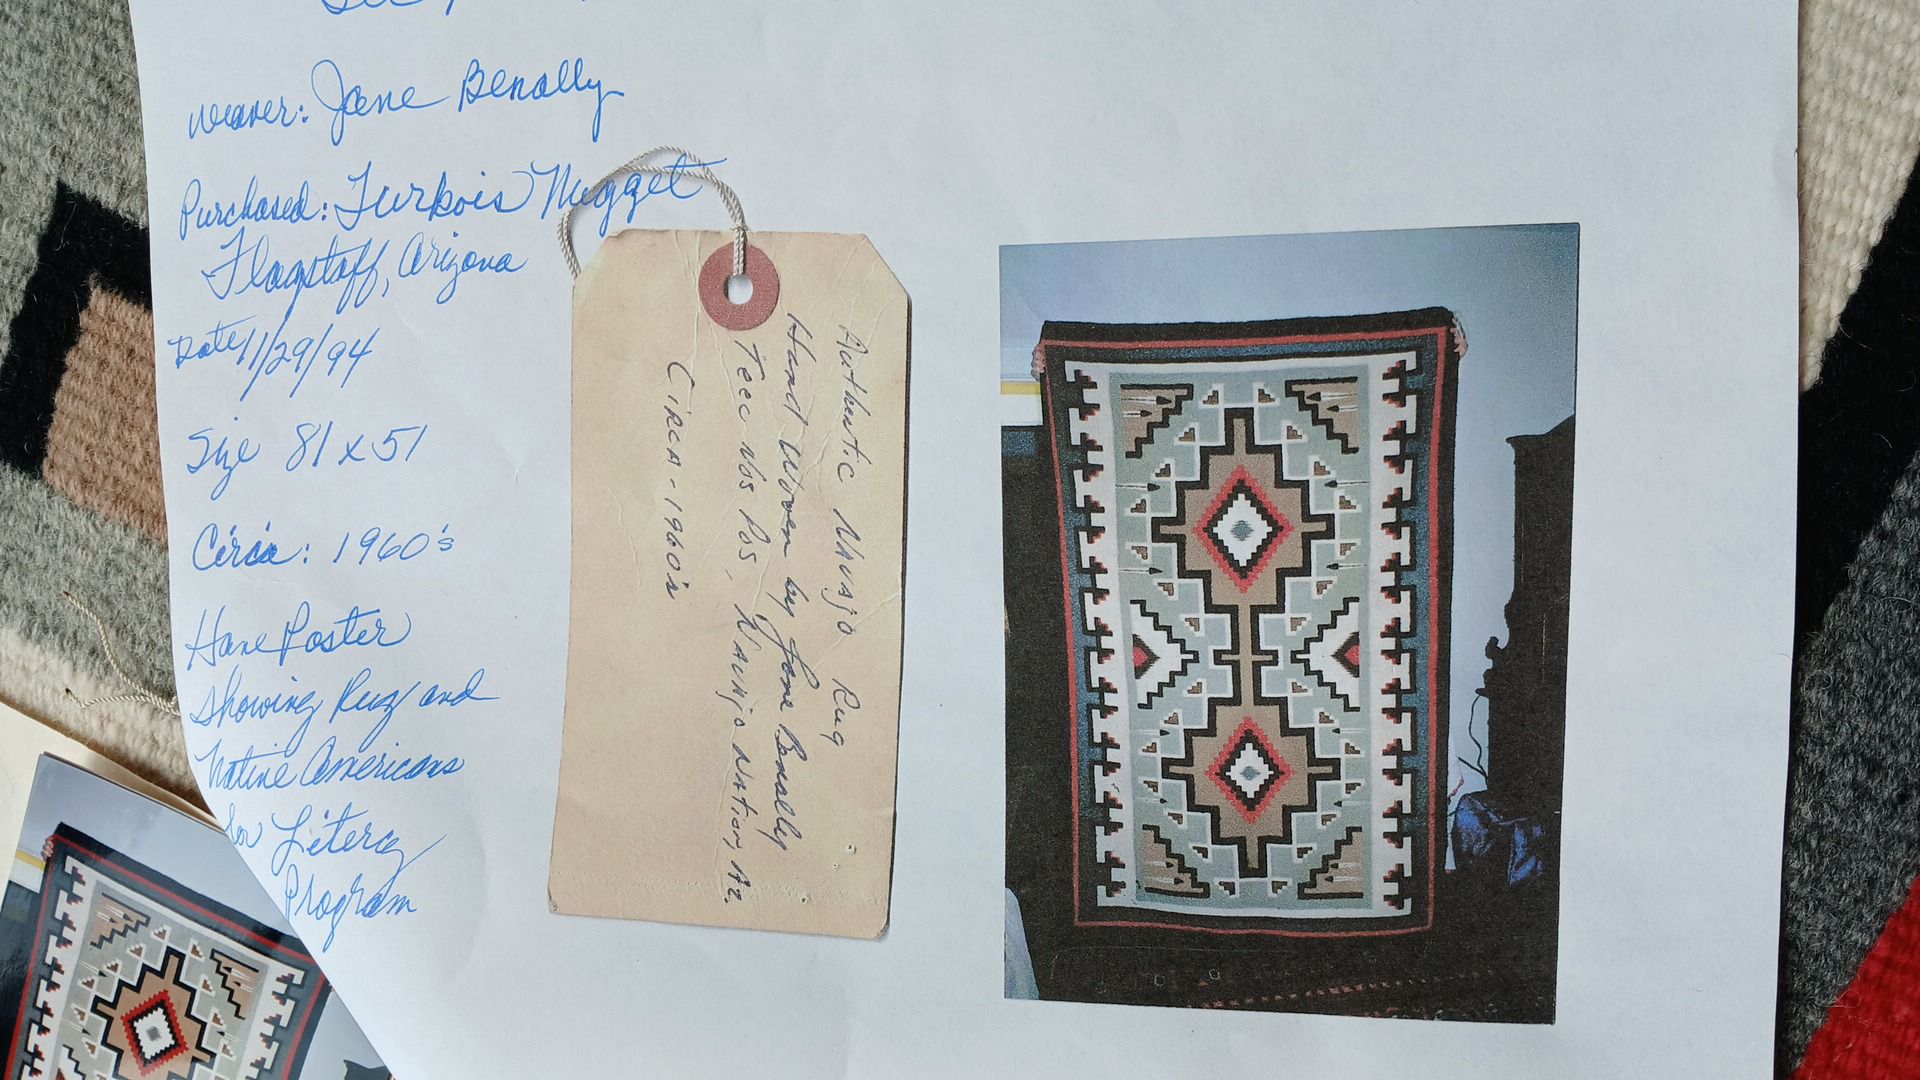 weaver: Jane Benally
Purchased: Turkois Nugget
Flagstaff, Arizona
Date 11/29/94
Size 81 x 51
Circa: 1960's
Have Poster
showing Rug and
Native Americans
for Litercy
Program
Authentic Navajo Rug
Hand Woven by Jane Benally
Teec Nos Pos, Navajo Nation, Az.
Circa - 1960's